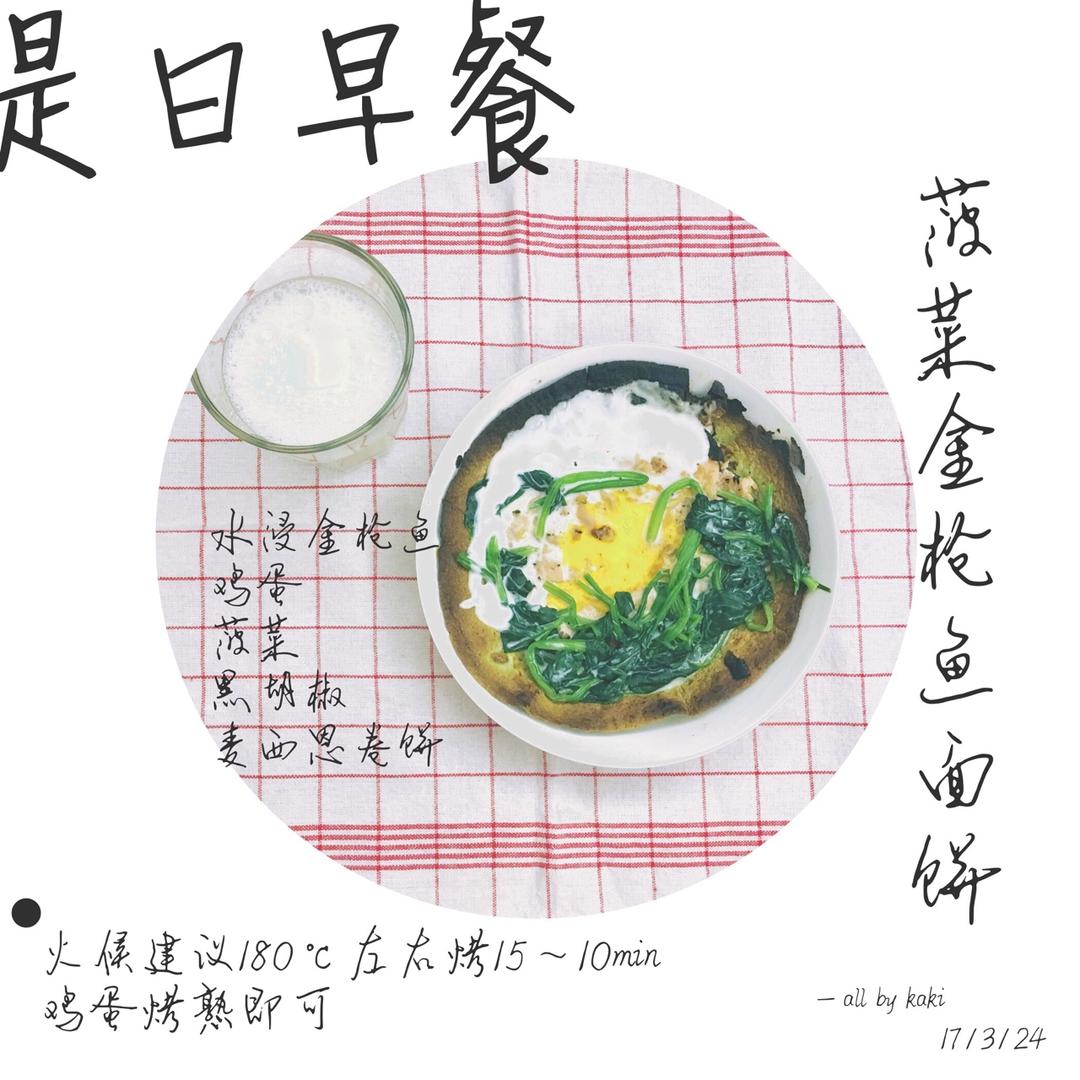 是日早餐
菠菜金枪鱼面饼
水浸金枪鱼
鸡蛋
菠菜
黑胡椒
麦西恩卷饼
火候建议180℃左右烤15~10min
鸡蛋烤熟即可
— all by kaki
17/3/24